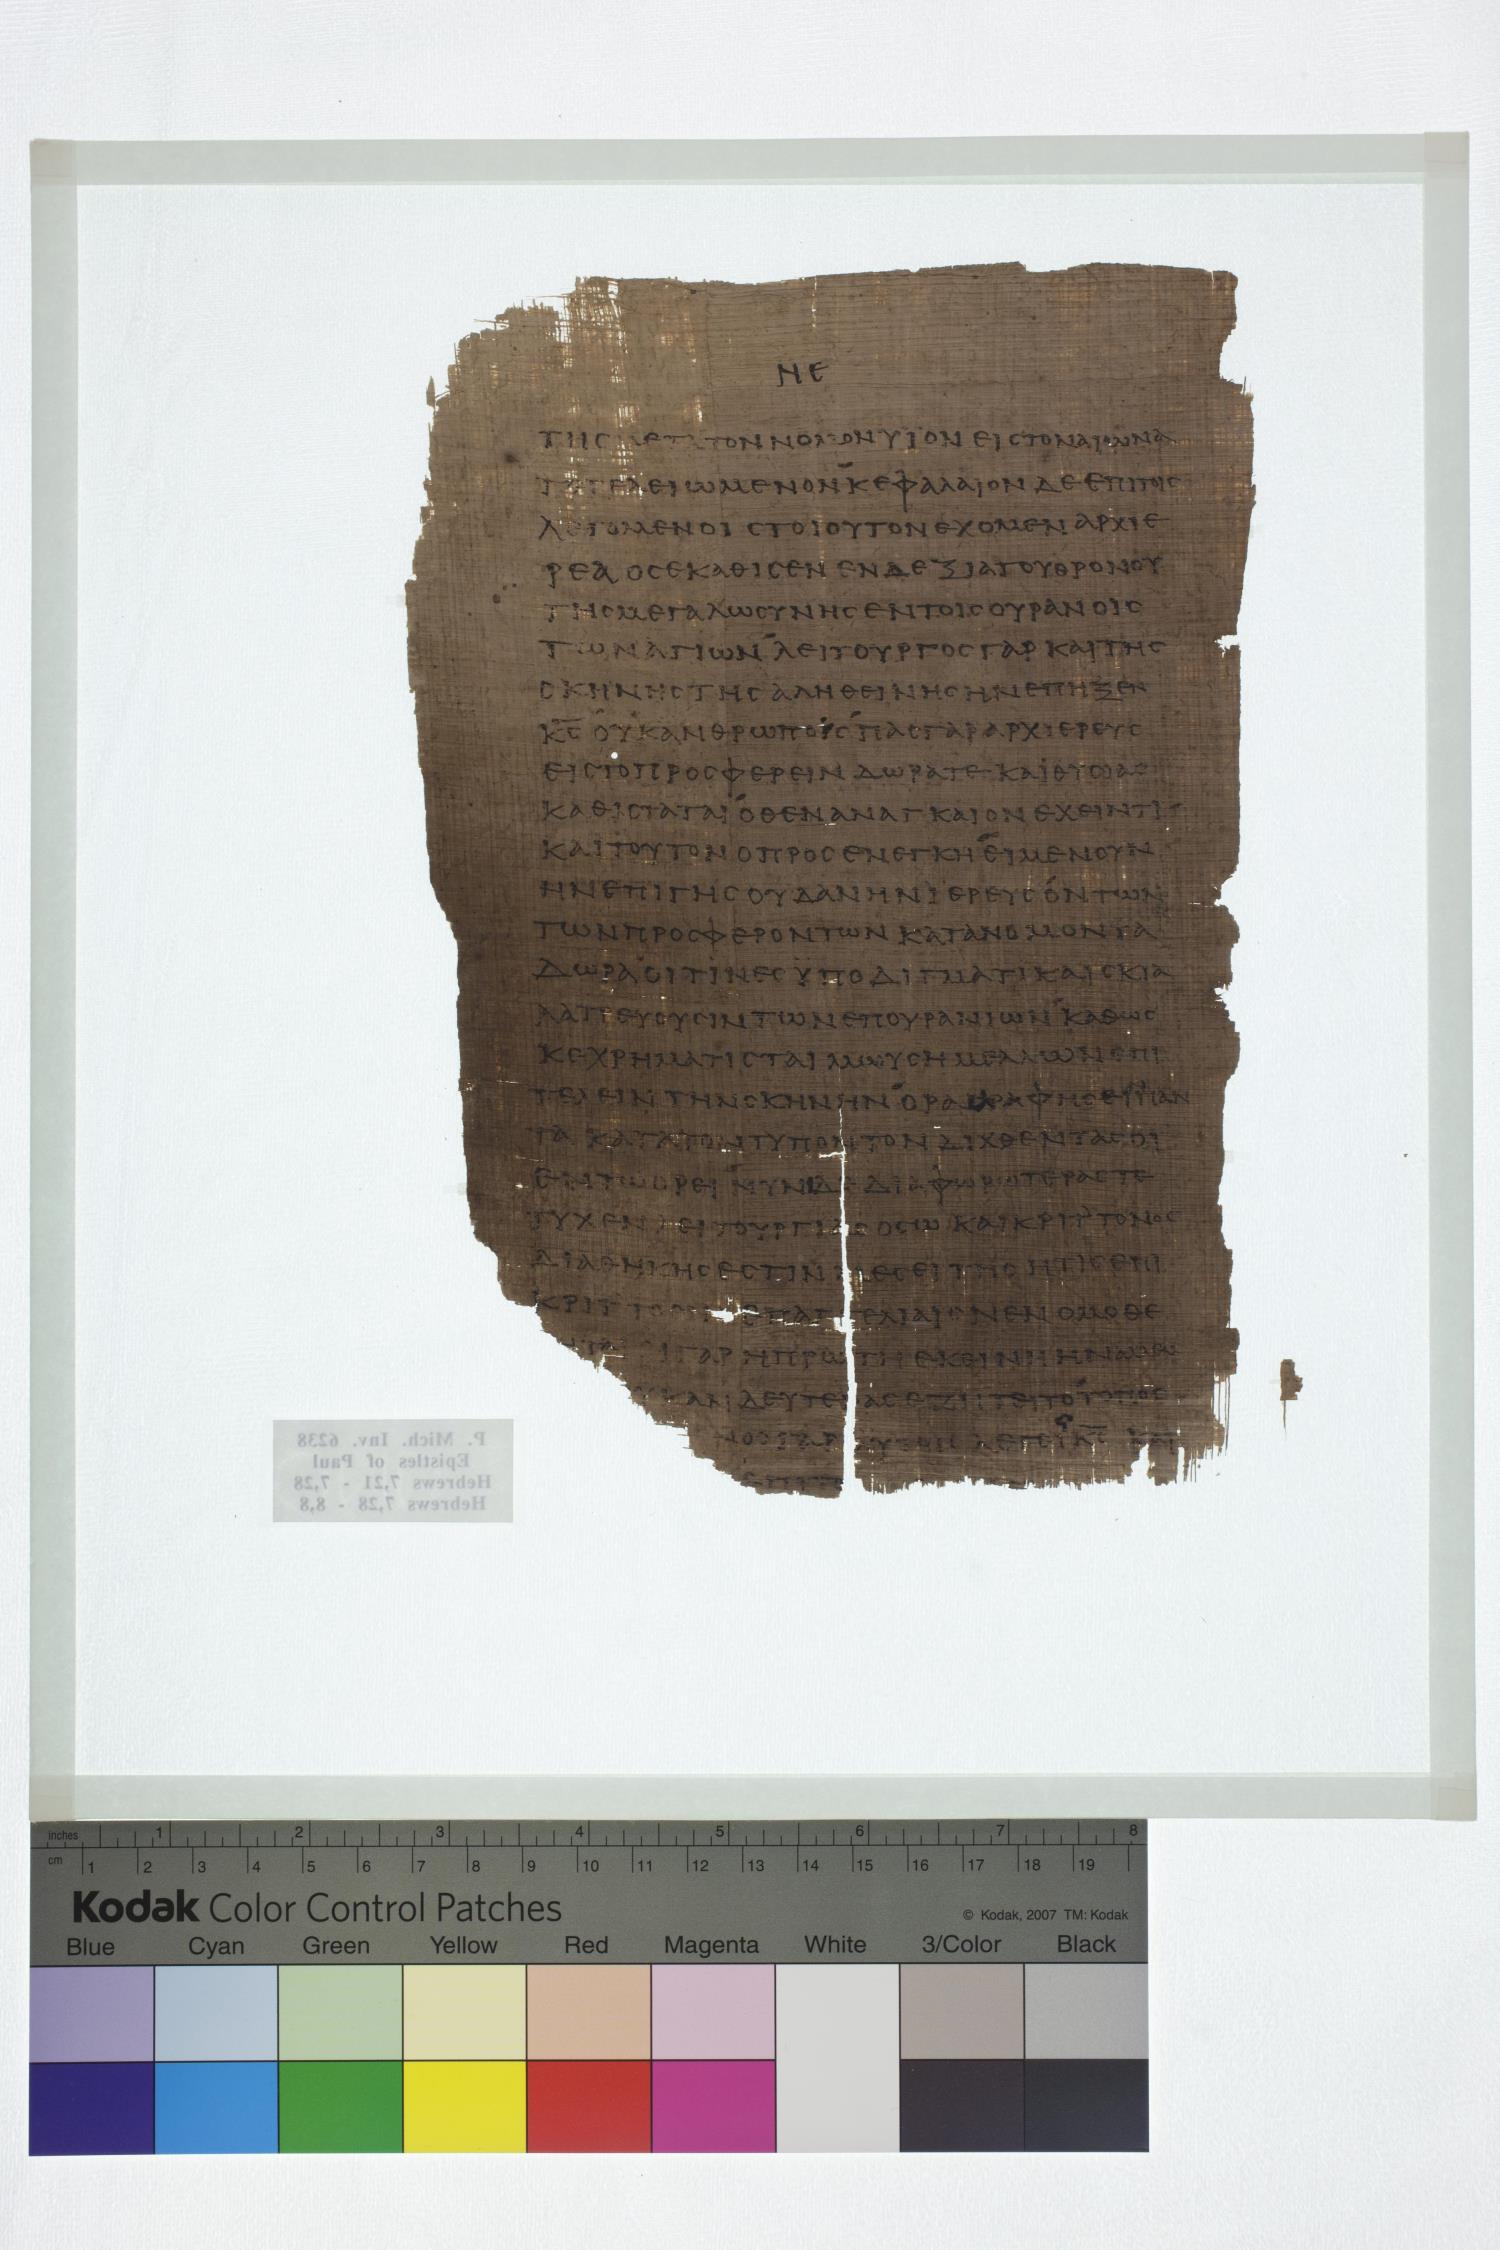 ΝΕ
ΤΗΣ ΜΕΤΑ ΤΟΝ ΝΟΜΟΝ ΥΪΟΝ ΕΙΣ ΤΟΝ ΑΙΩΝΑ
ΤΕΤΕΛΕΙΩΜΕΝΟΝ ΚΕΦΑΛΑΙΟΝ ΔΕ ΕΠΙ ΤΟΙΣ
ΛΕΓΟΜΕΝΟΙΣ ΤΟΙΟΥΤΟΝ ΕΧΟΜΕΝ ΑΡΧΙΕ
ΡΕΑ ΟΣ ΕΚΑΘΙΣΕΝ ΕΝ ΔΕΞΙΑ ΤΟΥ ΘΡΟΝΟΥ
ΤΗΣ ΜΕΓΑΛΩΣΥΝΗΣ ΕΝ ΤΟΙΣ ΟΥΡΑΝΟΙΣ
ΤΩΝ ΑΓΙΩΝ ΛΕΙΤΟΥΡΓΟΣ ΓΑΡ ΚΑΙ ΤΗΣ
ΣΚΗΝΗΣ ΤΗΣ ΑΛΗΘΕΙΝΗΣ ΗΝ ΕΠΗΞΕΝ
Κ̅Σ̅ ΟΥΚ ΑΝΘΡΩΠΟΣ ΠΑΣ ΓΑΡ ΑΡΧΙΕΡΕΥΣ
ΕΙΣ ΤΟ ΠΡΟΣΦΕΡΕΙΝ ΔΩΡΑ ΤΕ ΚΑΙ ΘΥΣΙΑΣ
ΚΑΘΙΣΤΑΤΑΙ ΟΘΕΝ ΑΝΑΓΚΑΙΟΝ ΕΧΕΙΝ ΤΙ
ΚΑΙ ΤΟΥΤΟΝ Ο ΠΡΟΣΕΝΕΓΚΗ ΕΙ ΜΕΝ ΟΥΝ
ΗΝ ΕΠΙ ΓΗΣ ΟΥΔ ΑΝ ΗΝ ΙΕΡΕΥΣ ΟΝΤΩΝ
ΤΩΝ ΠΡΟΣΦΕΡΟΝΤΩΝ ΚΑΤΑ ΝΟΜΟΝ ΤΑ
ΔΩΡΑ ΟΙΤΙΝΕΣ ΫΠΟΔΙΓΜΑΤΙ ΚΑΙ ΣΚΙΑ
ΛΑΤΡΕΥΟΥΣΙΝ ΤΩΝ ΕΠΟΥΡΑΝΙΩΝ ΚΑΘΩΣ
ΚΕΧΡΗΜΑΤΙΣΤΑΙ ΜΩΥΣΗ ΜΕΛΛΩΝ ΕΠΙ
ΤΕΛΕΙΝ ΤΗΝ ΣΚΗΝΗΝ ΟΡΑ ΓΡΑΦΗΣΕΙ ΠΑΝ
ΤΑ ΚΑΤΑ ΤΟΝ ΤΥΠΟΝ ΤΟΝ ΔΙΧΘΕΝΤΑ ΣΟΙ
ΕΝ ΤΩ ΟΡΕΙ ΝΥΝ ΔΕ ΔΙΑΦΩΡΩΤΕΡΑΣ ΤΕ
ΤΥΧΕΝ ΛΕΙΤΟΥΡΓΙΑΣ ΟΣΩ ΚΑΙ ΚΡΙΤΤΟΝΟΣ
ΔΙΑΘΗΚΗΣ ΕΣΤΙΝ ΜΕΣΕΙΤΗΣ ΗΤΙΣ ΕΠΙ
ΚΡΙΤΤΟΣΙΝ ΕΠΑΓΓΕΛΙΑΙΣ ΝΕΝΟΜΟΘΕ
ΓΑΡ Η ΠΡΩΤΗ ΕΚΕΙΝΗ ΗΝ
ΔΕΥΤΕΡΑΣ ΕΖΗΤΕΙΤΟ ΤΟΠΟΣ
ΛΕΓΕΙ Κ̅Σ̅ ΚΑΙ
P. Mich. Inv. 6238
Epistles of Paul
Hebrews 7,21 - 7,28
Hebrews 7,28 - 8,8
inches 1 2 3 4 5 6 7 8
cm 1 2 3 4 5 6 7 8 9 10 11 12 13 14 15 16 17 18 19
Kodak Color Control Patches
© Kodak, 2007 TM: Kodak
Blue Cyan Green Yellow Red Magenta White 3/Color Black